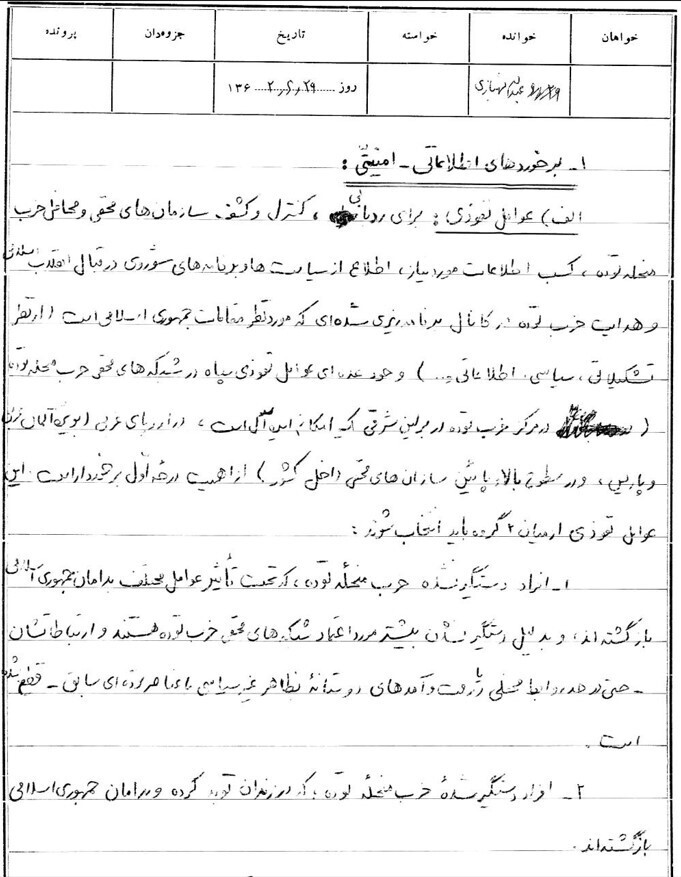 خواهان خوانده خواسته تاریخ جزوه‌دان پرونده
عبداله شهبازی روز ۲۹ ۱۳۶
۱ـ برخوردهای اطلاعاتی ـ امنیتی :
الف) عوامل نفوذی : برای ردیابی ، کنترل و کشف سازمان‌های مخفی و محافل حزب
منحله توده ، کسب اطلاعات مورد نیاز، اطلاع از سیاست‌ها و برنامه‌های شوروی در قبال انقلاب اسلامی
و هدایت حزب توده در کانال برنامه‌ریزی شده‌ای که مورد نظر مقامات جمهوری اسلامی است (از نظر
تشکیلاتی ، سیاسی، اطلاعاتی و...) وجود عده‌ای عوامل نفوذی سپاه در شبکه‌های مخفی حزب منحله توده
( در مرکز حزب توده در برلین شرقی که امکانپذیر است ، در اروپای غربی (بویژه آلمان غربی
و پاریس ، و در سطوح بالا و پائین سازمان‌های مخفی داخل کشور) از اهمیت درجه اول برخوردار است. این
عوامل نفوذی از میان ۲ گروه باید انتخاب شوند :
۱ـ افراد دستگیر نشده حزب منحله توده ، که تحت تأثیر عوامل مختلف به دامان جمهوری اسلامی
بازگشته‌اند، و بدلیل دستگیر نشدن بیشتر مورد اعتماد شبکه‌های مخفی حزب توده هستند و ارتباطاتشان
ـ حتی در حد روابط محفلی یا رفت و آمدهای دوستانهٔ بظاهر غیر سیاسی با عناصر توده‌ای سابق ـ قطع نشده
است .
۲ـ افراد دستگیر شدهٔ حزب منحله توده ، که در زندان توبه کرده و به دامان جمهوری اسلامی
بازگشته‌اند .